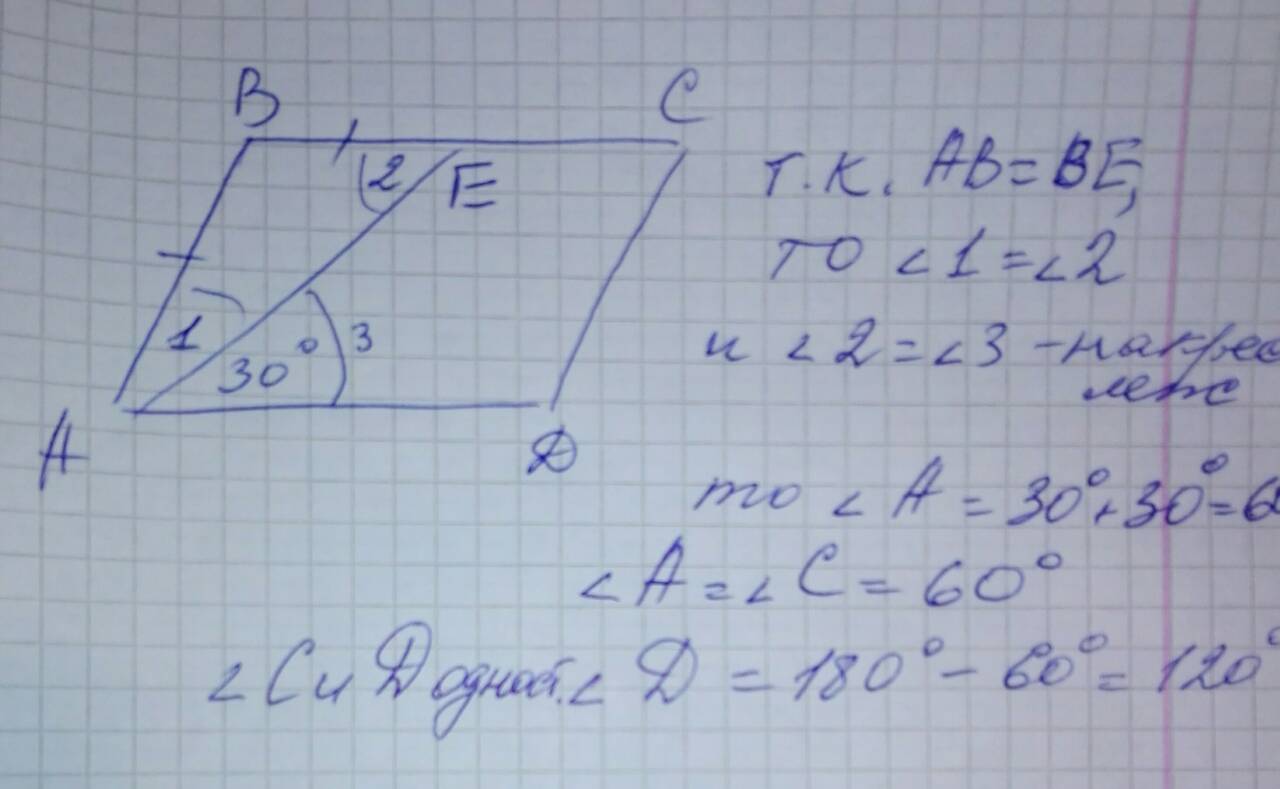 B
C
2
E
1
30°
3
A
D
т.к. AB=BE,
то ∠1=∠2
и ∠2=∠3 - накрес
леж
то ∠A = 30°+30°=60
∠A=∠C=60°
∠C и D одност. ∠D = 180° - 60° = 120°